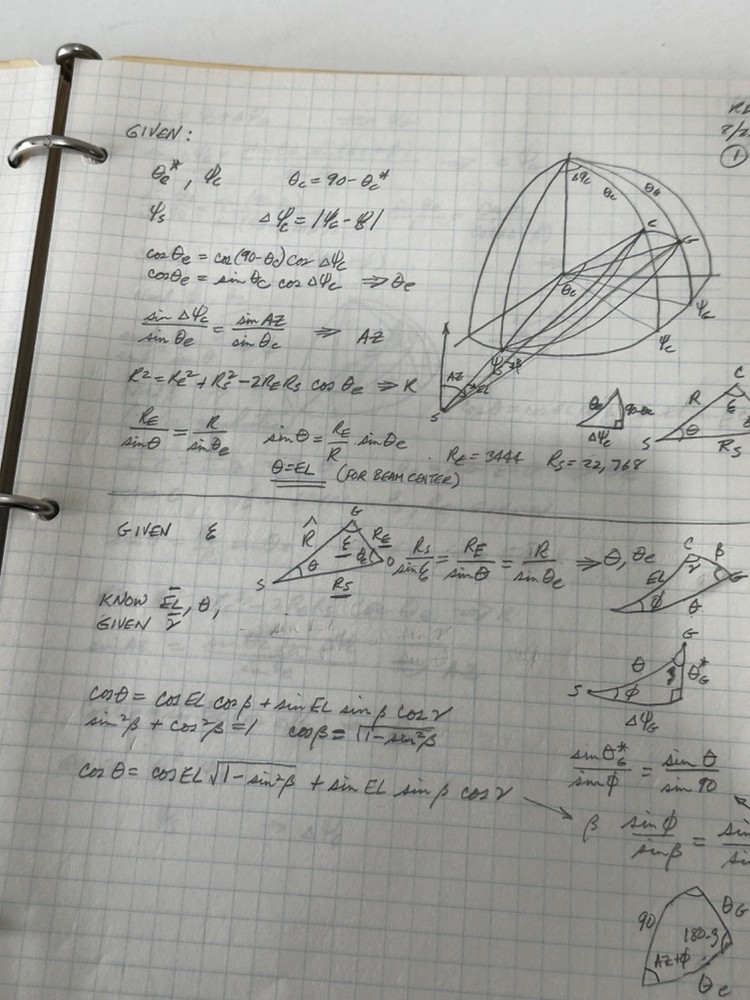 ①
GIVEN:
θe*, ψc    θc = 90 - θc*
ψs    Δψc = |ψc - ψs|
cosθe = cos(90-θc) cos Δψc
cosθe = sinθc cos Δψc ⇒ θe
sin Δψc / sin θe = sin AZ / sin θc ⇒ AZ
R² = RE² + Rs² - 2RERs cos θe ⇒ R
RE / sinθ = R / sinθe    sinθ = RE / R · sinθe    RE = 3444    Rs = 22,768
θ = EL (FOR BEAM CENTER)
Δψc θc θG
C G
θc
ψG
ψc
AZ EL
S
Δψc
C
R ε
S θ Rs
GIVEN ε
G
R̂ ε RE
S θ θe O
Rs
Rs / sin ε = RE / sinθ = R / sinθe ⇒ θ, θe
C β
EL γ G
φ θ
KNOW EL, θ,
GIVEN γ
G
θ θG*
S φ
ΔψG
cosθ = cos EL cos β + sin EL sin β cos γ
sin²β + cos²β = 1    cosβ = √1-sin²β
cosθ = cos EL √1-sin²β + sin EL sin β cos γ
sinθG* / sinφ = sin θ / sin 90
β sin φ / sin β =
90 θG
180-
AZ+φ
θc